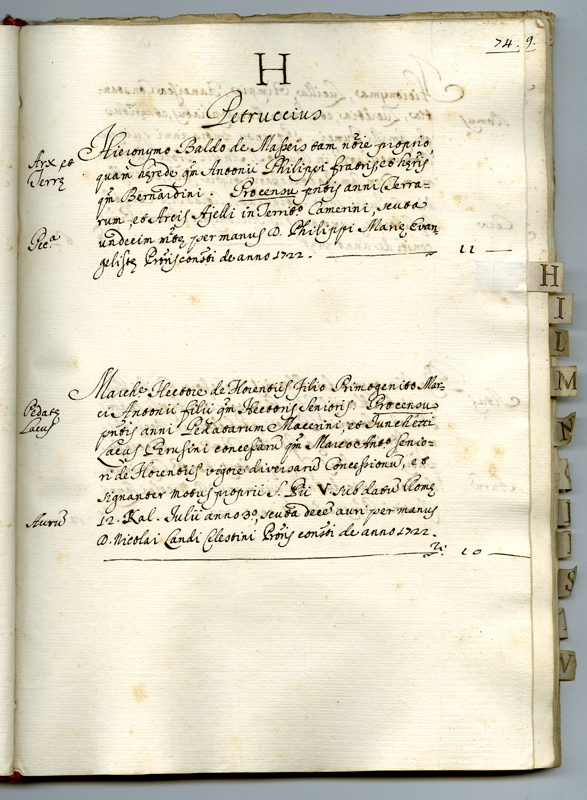 74. 9.
H
Petruccius
Arx et
Terrę
Hieronymo Baldo de Masseis tam nõie proprio
quam hęrede qm̃ Antonii Philippi fratris, et hęr̃is
qm̃ Bernardini. Pro censu pñtis anni Terra-
rum, et Arcis Ajelli in Territo Camerini, scuta
Pica
undecim mtę per manus D. Philippi Marię Evan-
gelistę Pr̃ois consti de anno 1722. 11 —
March: Hectore de Florentiis Filio Primogenito Mar-
Pedatę
ci Antonii filii qm̃ Hectoris Senioris. Pro censu
Lacus
pñtis anni Pedatarum Macerini, et Juncheti
Lacus Perusini concessarũ qm̃ Marco Anto senio-
ri de Florentiis vigore diversarũ Concessionũ, et
signanter motus proprii S. Pii V. sub datũ Romę
Aurũ
12. Kal. Julii anno 3o, scuta decẽ auri per manus
D. Nicolai Candi Celestini Pr̃ois consti de anno 1722.
10 —
H
I
L
M
N
S
V